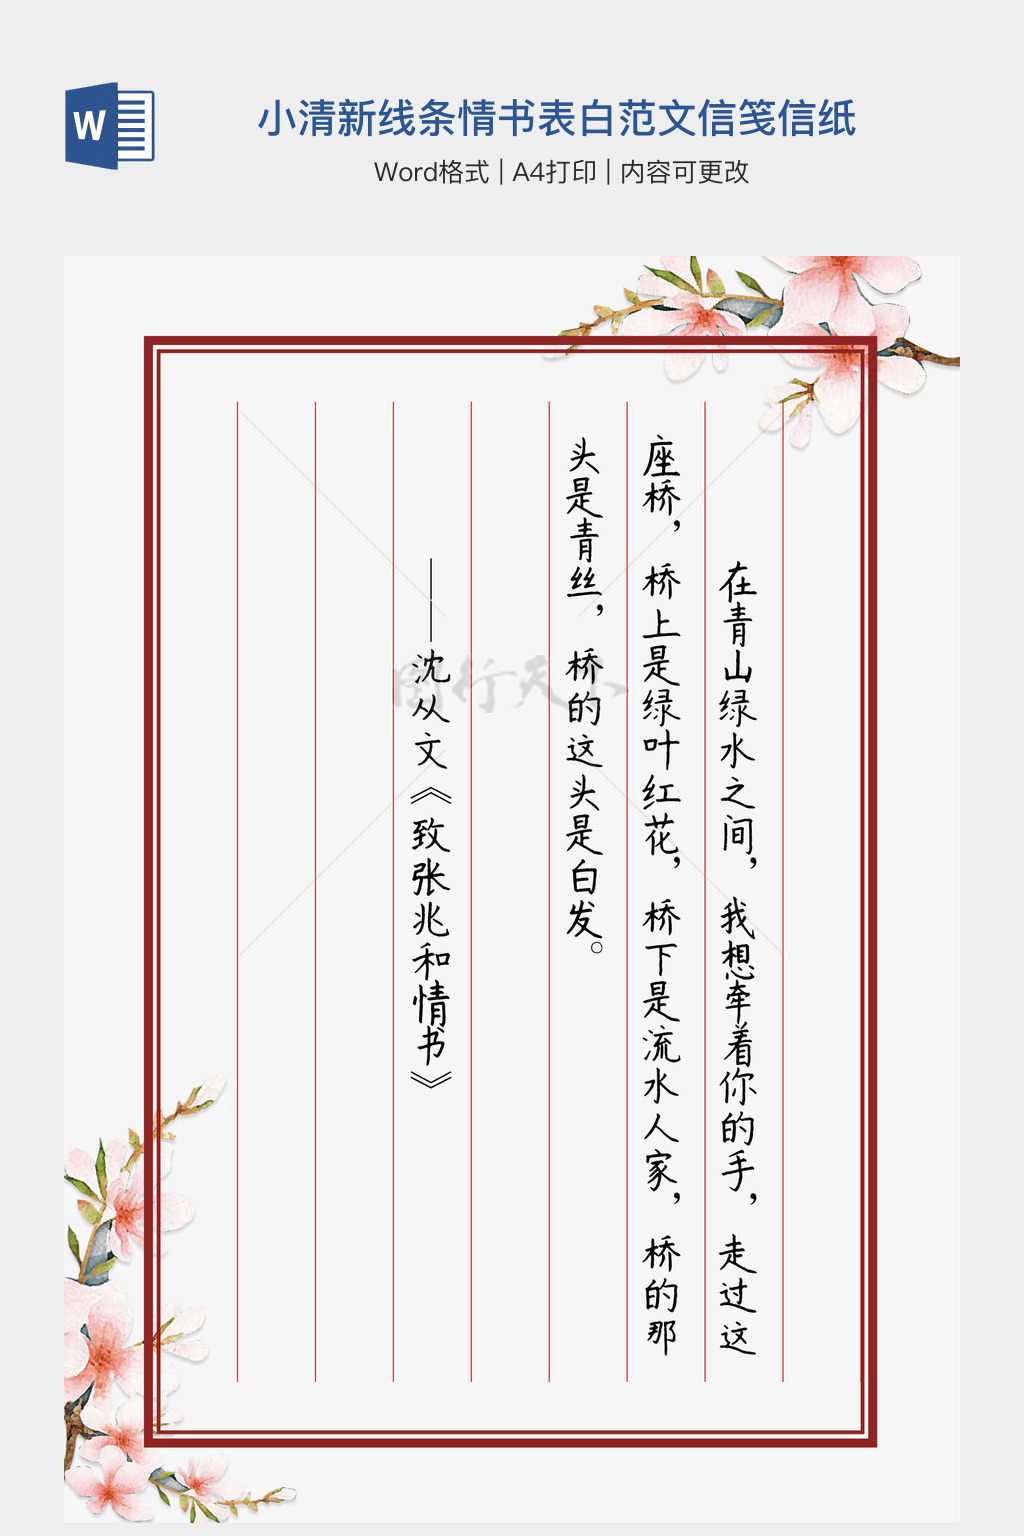 W
小清新线条情书表白范文信笺信纸
Word格式 | A4打印 | 内容可更改
在青山绿水之间，我想牵着你的手，走过这
座桥，桥上是绿叶红花，桥下是流水人家，桥的那
头是青丝，桥的这头是白发。
——沈从文《致张兆和情书》
图行天下